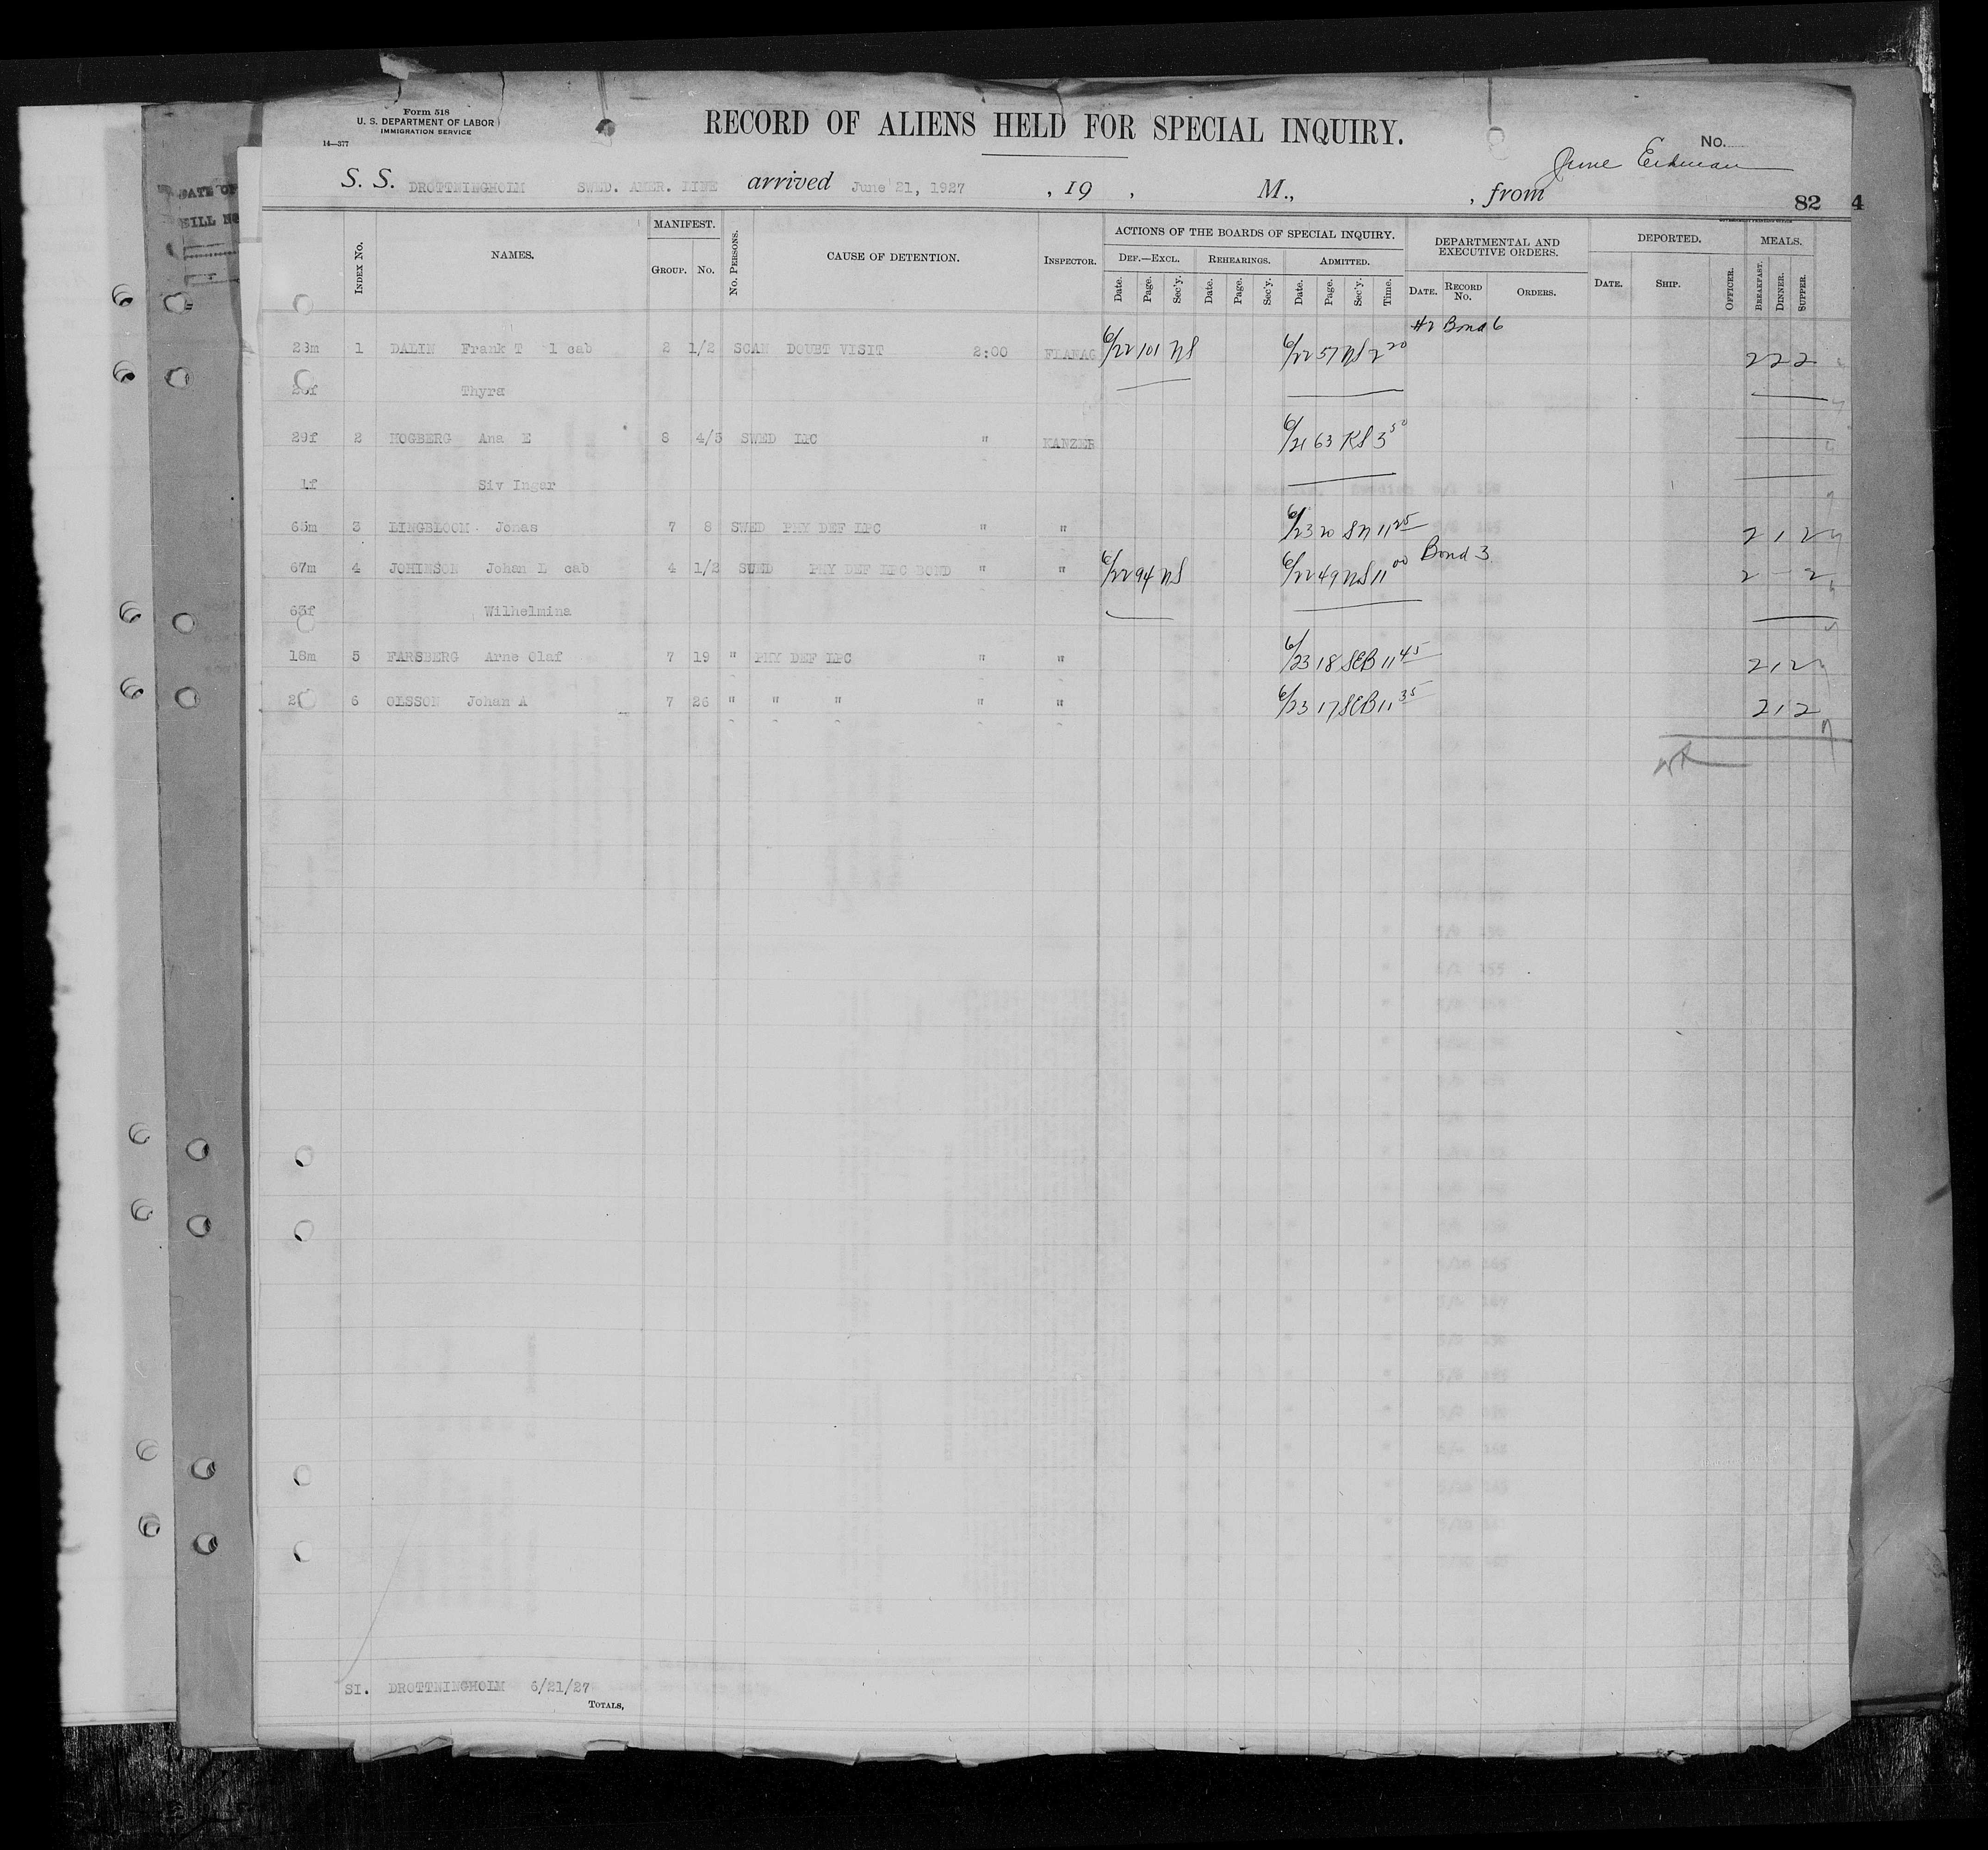 Form 518
U. S. DEPARTMENT OF LABOR
IMMIGRATION SERVICE
14—377
RECORD OF ALIENS HELD FOR SPECIAL INQUIRY.
No.
S. S. DROTTNINGHOLM SWED. AMER. LINE arrived June 21, 1927 , 19 , M., , from
82 4
DATE OF
BILL NO
INDEX No. NAMES. MANIFEST. GROUP. No. No. PERSONS. CAUSE OF DETENTION. INSPECTOR. ACTIONS OF THE BOARDS OF SPECIAL INQUIRY. DEPARTMENTAL AND EXECUTIVE ORDERS. DEPORTED. MEALS.
DEF.—EXCL. REHEARINGS. ADMITTED.
Date. Page. Sec'y. Date. Page. Sec'y. Date. Page. Sec'y. Time. DATE. RECORD No. ORDERS. DATE. SHIP. OFFICER. BREAKFAST. DINNER. SUPPER.
#2 Bond 6
23m 1 DALIN Frank T 1 cab 2 1/2 SCAN DOUBT VISIT 2:00 FLANAG 6/22 101 NS 6/22 57 NS 2 20 2 2 2
Thyra
29f 2 HOGBERG Ana E 8 4/5 SWED LPC " KANZER 6/21 63 KS 3 50
1f Siv Inger
65m 3 LINGBLOOM Jonas 7 8 SWED PHY DEF LPC " " 6/23 20 SN 11 25 2 1 2
Bond 3
67m 4 JOHNSON Johan L cab 4 1/2 SWED PHY DEF LPC BOND " " 6/22 94 NS 6/22 49 NS 11 00 2 - 2
63f Wilhelmina
18m 5 FARSBERG Arne Olaf 7 19 " PHY DEF LPC " " 6/23 18 SEB 11 45 2 1 2
6 OLSSON Johan A 7 26 " " " " " 6/23 17 SEB 11 35 2 1 2
SI. DROTTNINGHOLM 6/21/27
TOTALS,